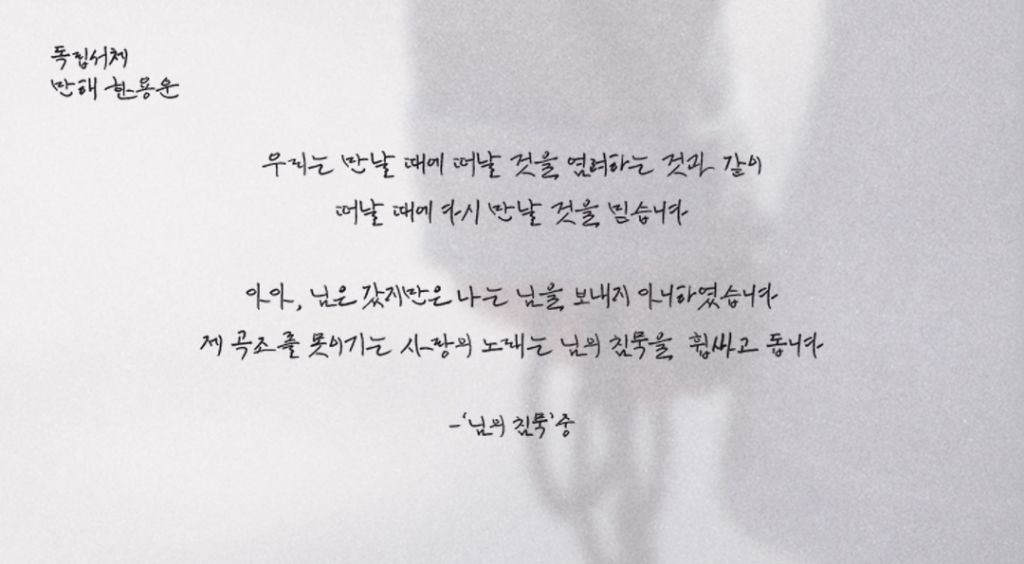 독립서체
만해 한용운
우리는 만날 때에 떠날 것을 염려하는 것과 같이
떠날 때에 다시 만날 것을 믿습니다
아아, 님은 갔지만은 나는 님을 보내지 아니하였습니다
제 곡조를 못이기는 사랑의 노래는 님의 침묵을 휩싸고 돕니다
-'님의 침묵' 중